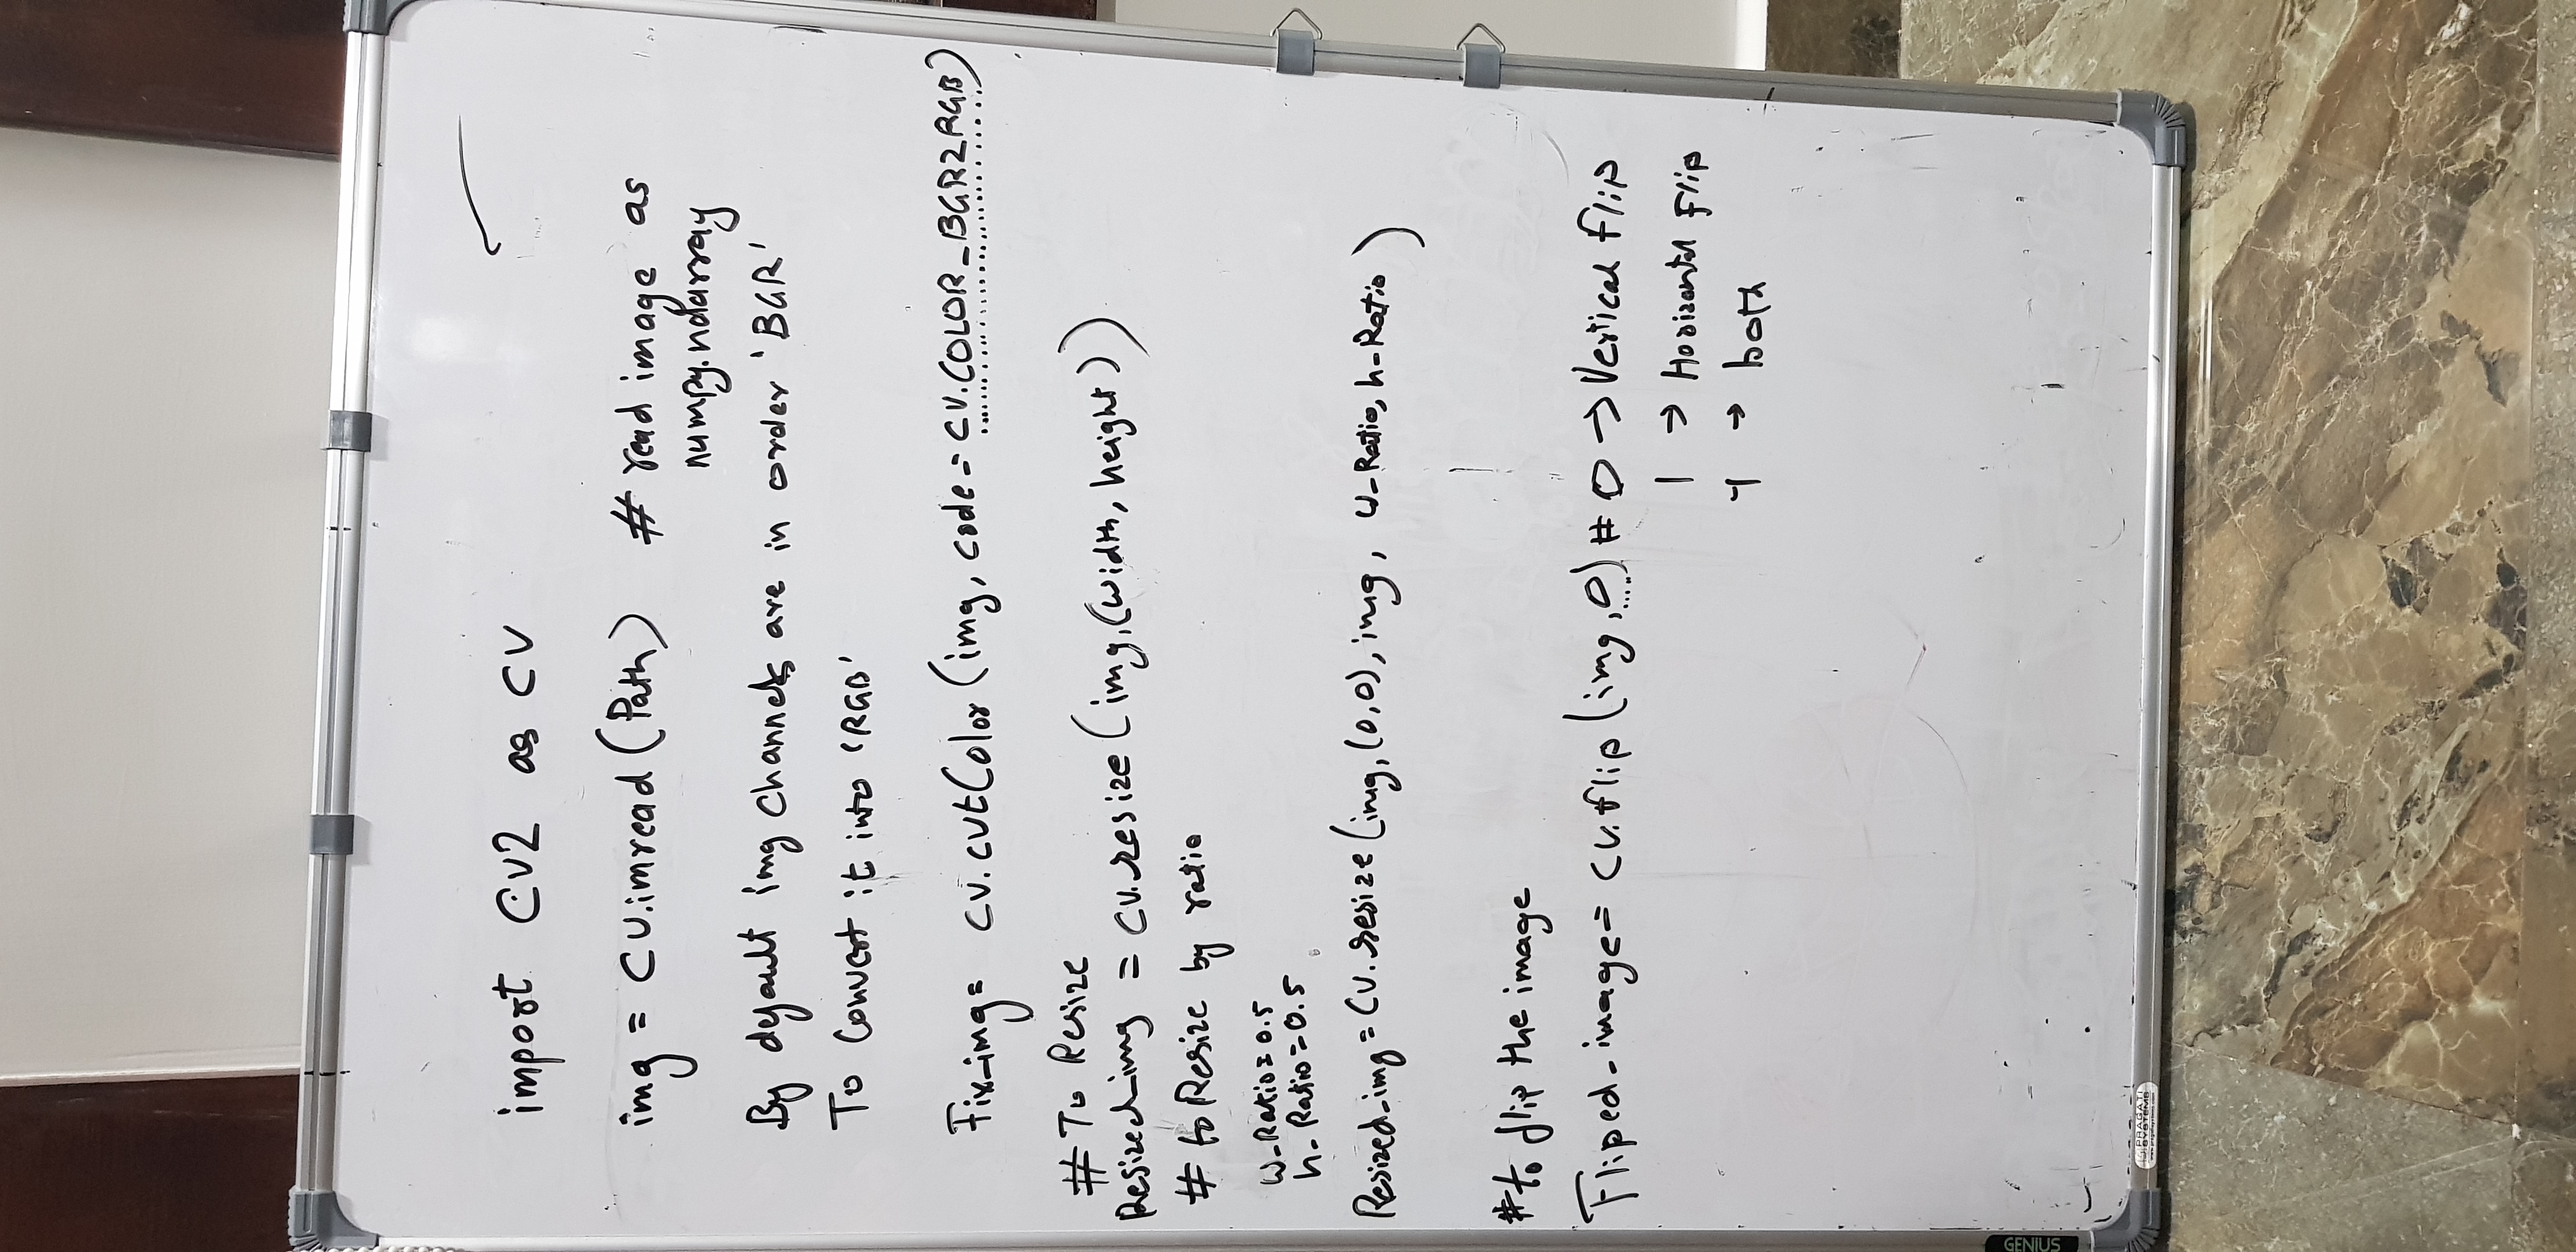 import CV2 as CV
img = CV.imread (Path) # read image as
numpy.ndarray
By default img channels are in order 'BGR'
To Convert it into 'RGB'
Fix_img = CV.CVtColor (img, code = CV.COLOR_BGR2RGB)
# To Resize
Resized_img = CV.resize (img, (width, height))
# to Resize by ratio
w_Ratio = 0.5
h_Ratio = 0.5
Resized_img = CV.resize (img, (0,0), img, w_Ratio, h_Ratio)
# to flip the image
Fliped_image = CV.flip (img, 0) # 0 → Vertical Flip
1 → Horizontal Flip
-1 → both
GENIUS
PRAGATI
SYSTEMS